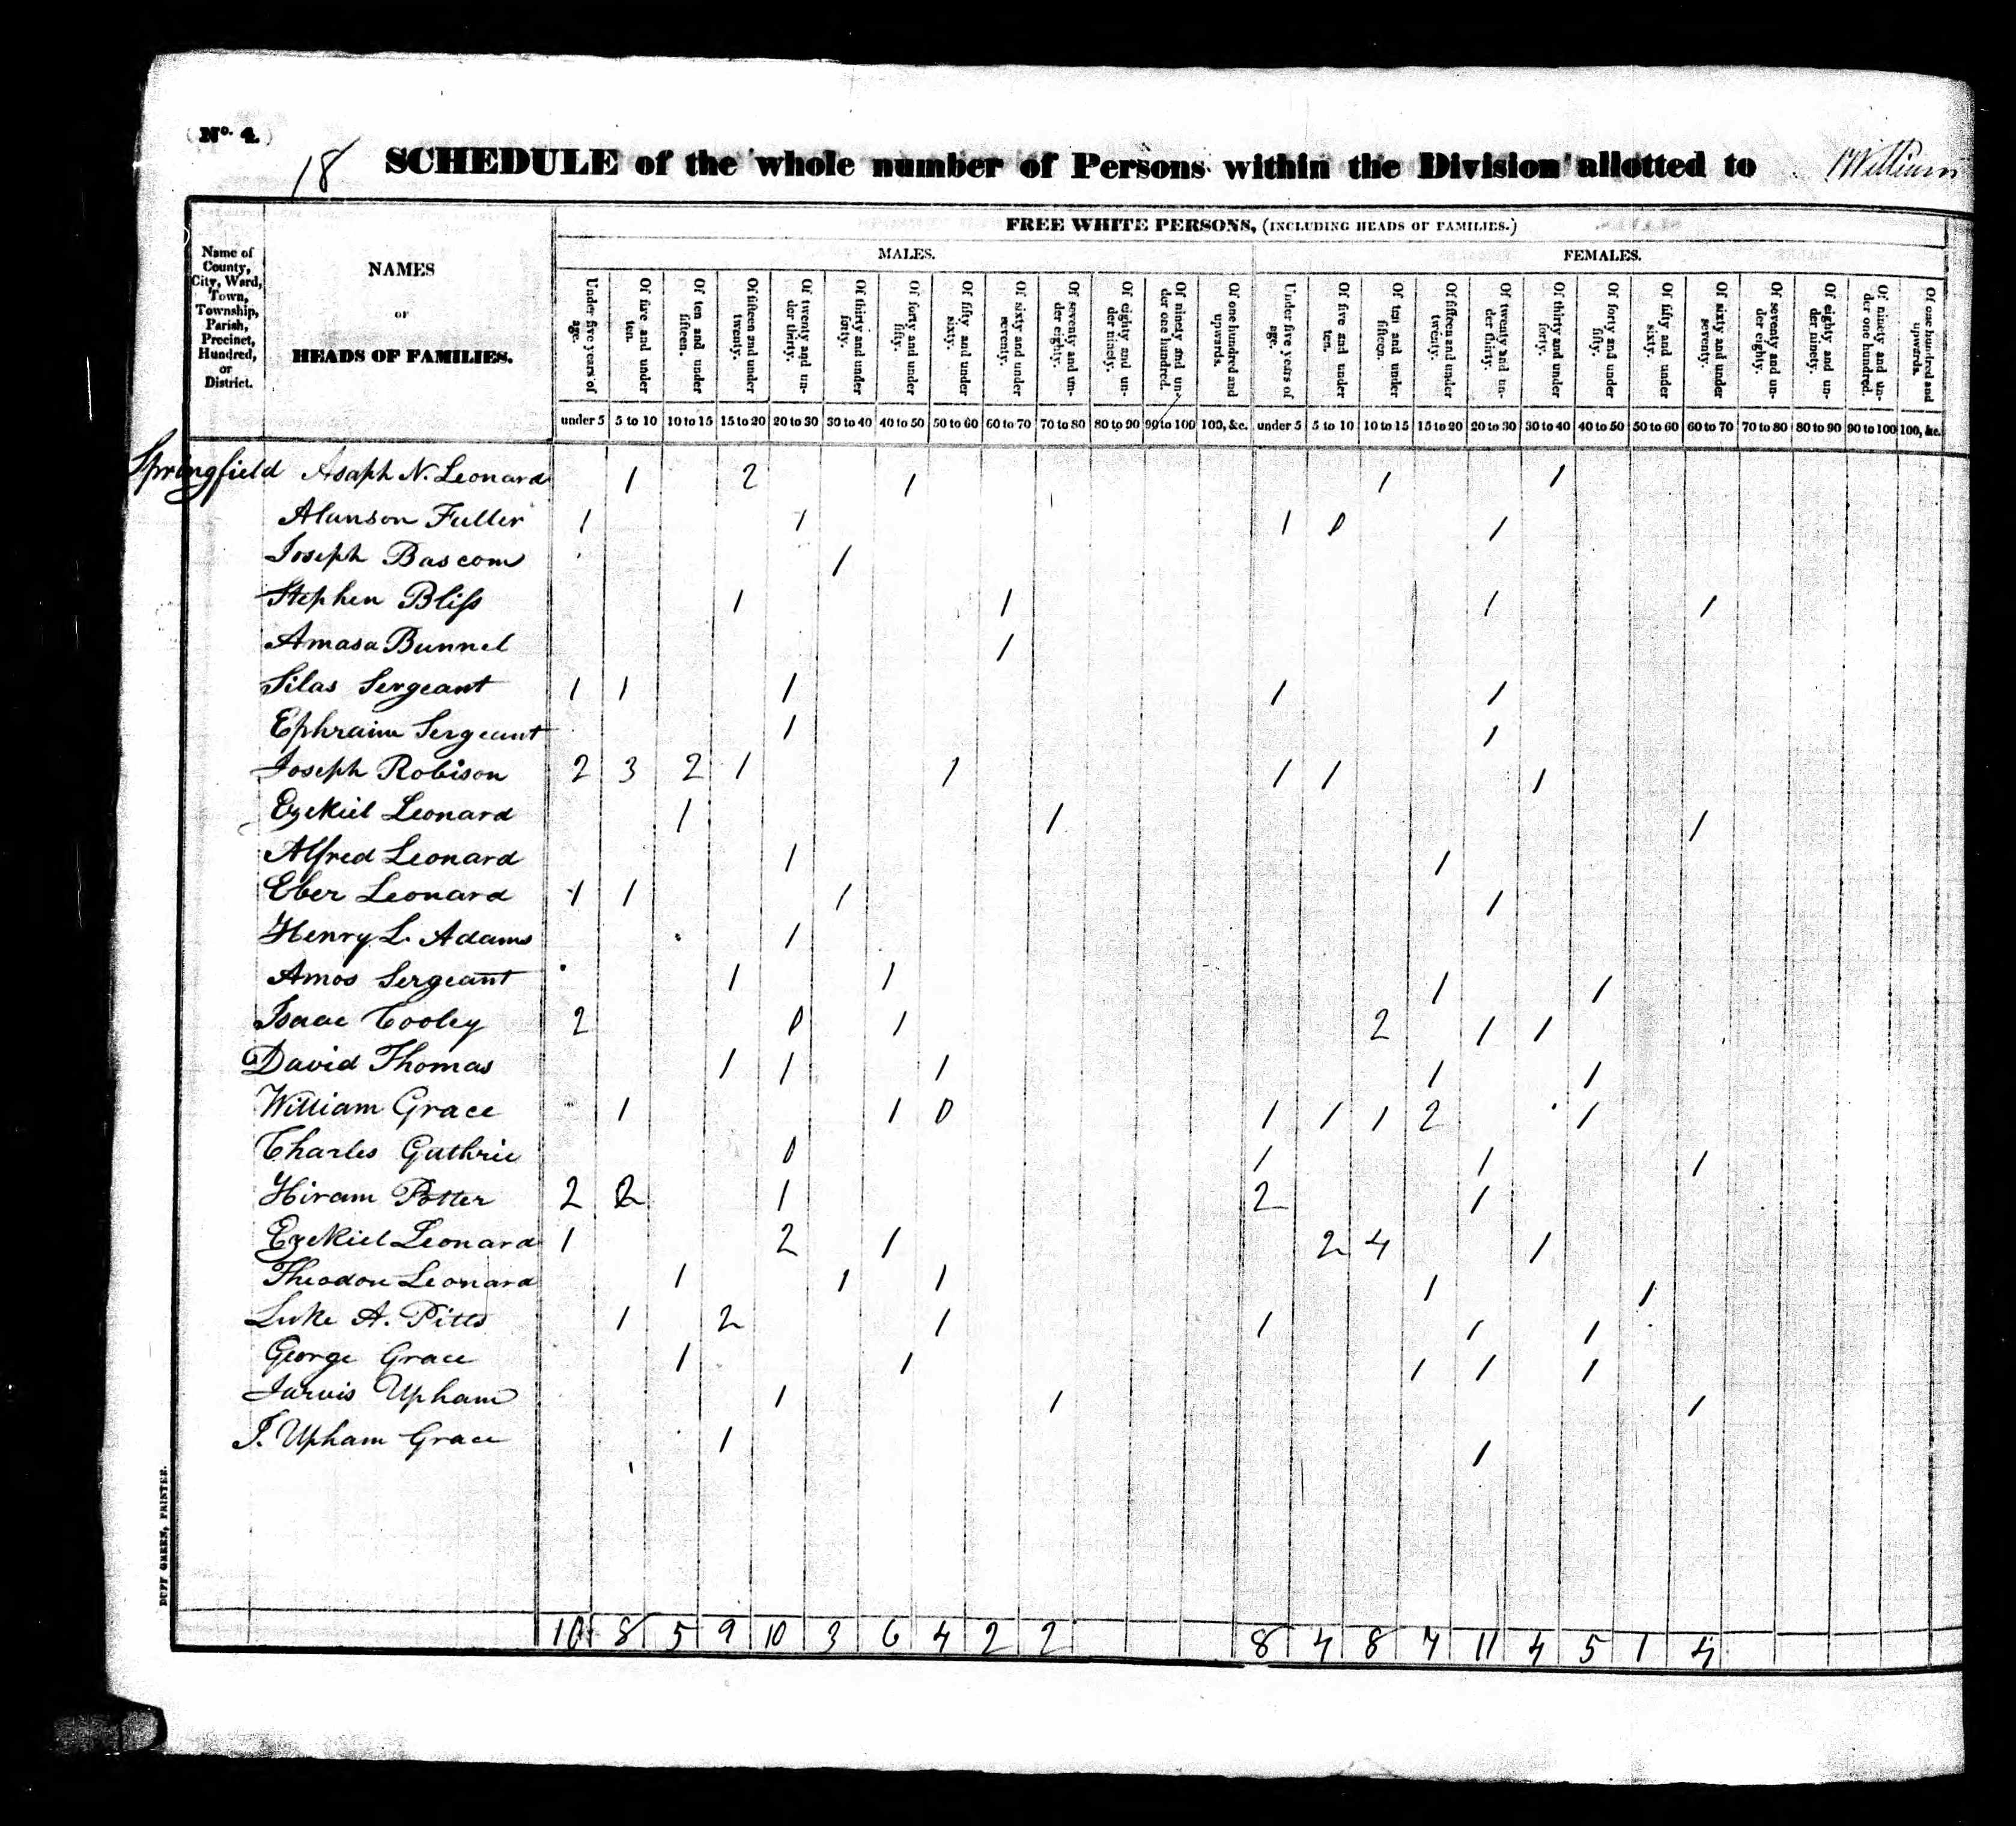 (No. 4.)
18 SCHEDULE of the whole number of Persons within the Division allotted to William
FREE WHITE PERSONS, (INCLUDING HEADS OF FAMILIES.)
MALES. FEMALES.
Name of County, City, Ward, Town, Township, Parish, Precinct, Hundred, or District.
NAMES OF HEADS OF FAMILIES.
Under five years of age. Of five and under ten. Of ten and under fifteen. Of fifteen and under twenty. Of twenty and under thirty. Of thirty and under forty. Of forty and under fifty. Of fifty and under sixty. Of sixty and under seventy. Of seventy and under eighty. Of eighty and under ninety. Of ninety and under one hundred. Of one hundred and upwards. Under five years of age. Of five and under ten. Of ten and under fifteen. Of fifteen and under twenty. Of twenty and under thirty. Of thirty and under forty. Of forty and under fifty. Of fifty and under sixty. Of sixty and under seventy. Of seventy and under eighty. Of eighty and under ninety. Of ninety and under one hundred. Of one hundred and upwards.
under 5 5 to 10 10 to 15 15 to 20 20 to 30 30 to 40 40 to 50 50 to 60 60 to 70 70 to 80 80 to 90 90 to 100 100, &c. under 5 5 to 10 10 to 15 15 to 20 20 to 30 30 to 40 40 to 50 50 to 60 60 to 70 70 to 80 80 to 90 90 to 100 100, &c.
Springfield Asaph N. Leonard 1 2 1 1 1
Alanson Fuller 1 1 1 0 1
Joseph Bascom 1
Stephen Bliss 1 1 1 1
Amasa Bunnel 1
Silas Sergeant 1 1 1 1 1
Ephraim Sergeant 1 1
Joseph Robison 2 3 2 1 1 1 1 1
Ezekiel Leonard 1 1 1
Alfred Leonard 1 1
Eber Leonard 1 1 1 1
Henry L. Adams 1
Amos Sergeant 1 1 1 1
Isaac Cooley 2 0 1 2 1 1
David Thomas 1 1 1 1 1
William Grace 1 1 0 1 1 1 2 1
Charles Guthrie 0 1 1 1
Hiram Potter 2 2 1 2 1
Ezekiel Leonard 1 2 1 2 4 1
Theodore Leonard 1 1 1 1 1
Luke A. Pitts 1 2 1 1 1 1
George Grace 1 1 1 1 1
Jarvis Upham 1 1 1
J. Upham Grace 1 1
10 8 5 9 10 3 6 4 2 2 8 4 8 7 11 4 5 1 4
DUFF GREEN, PRINTER.